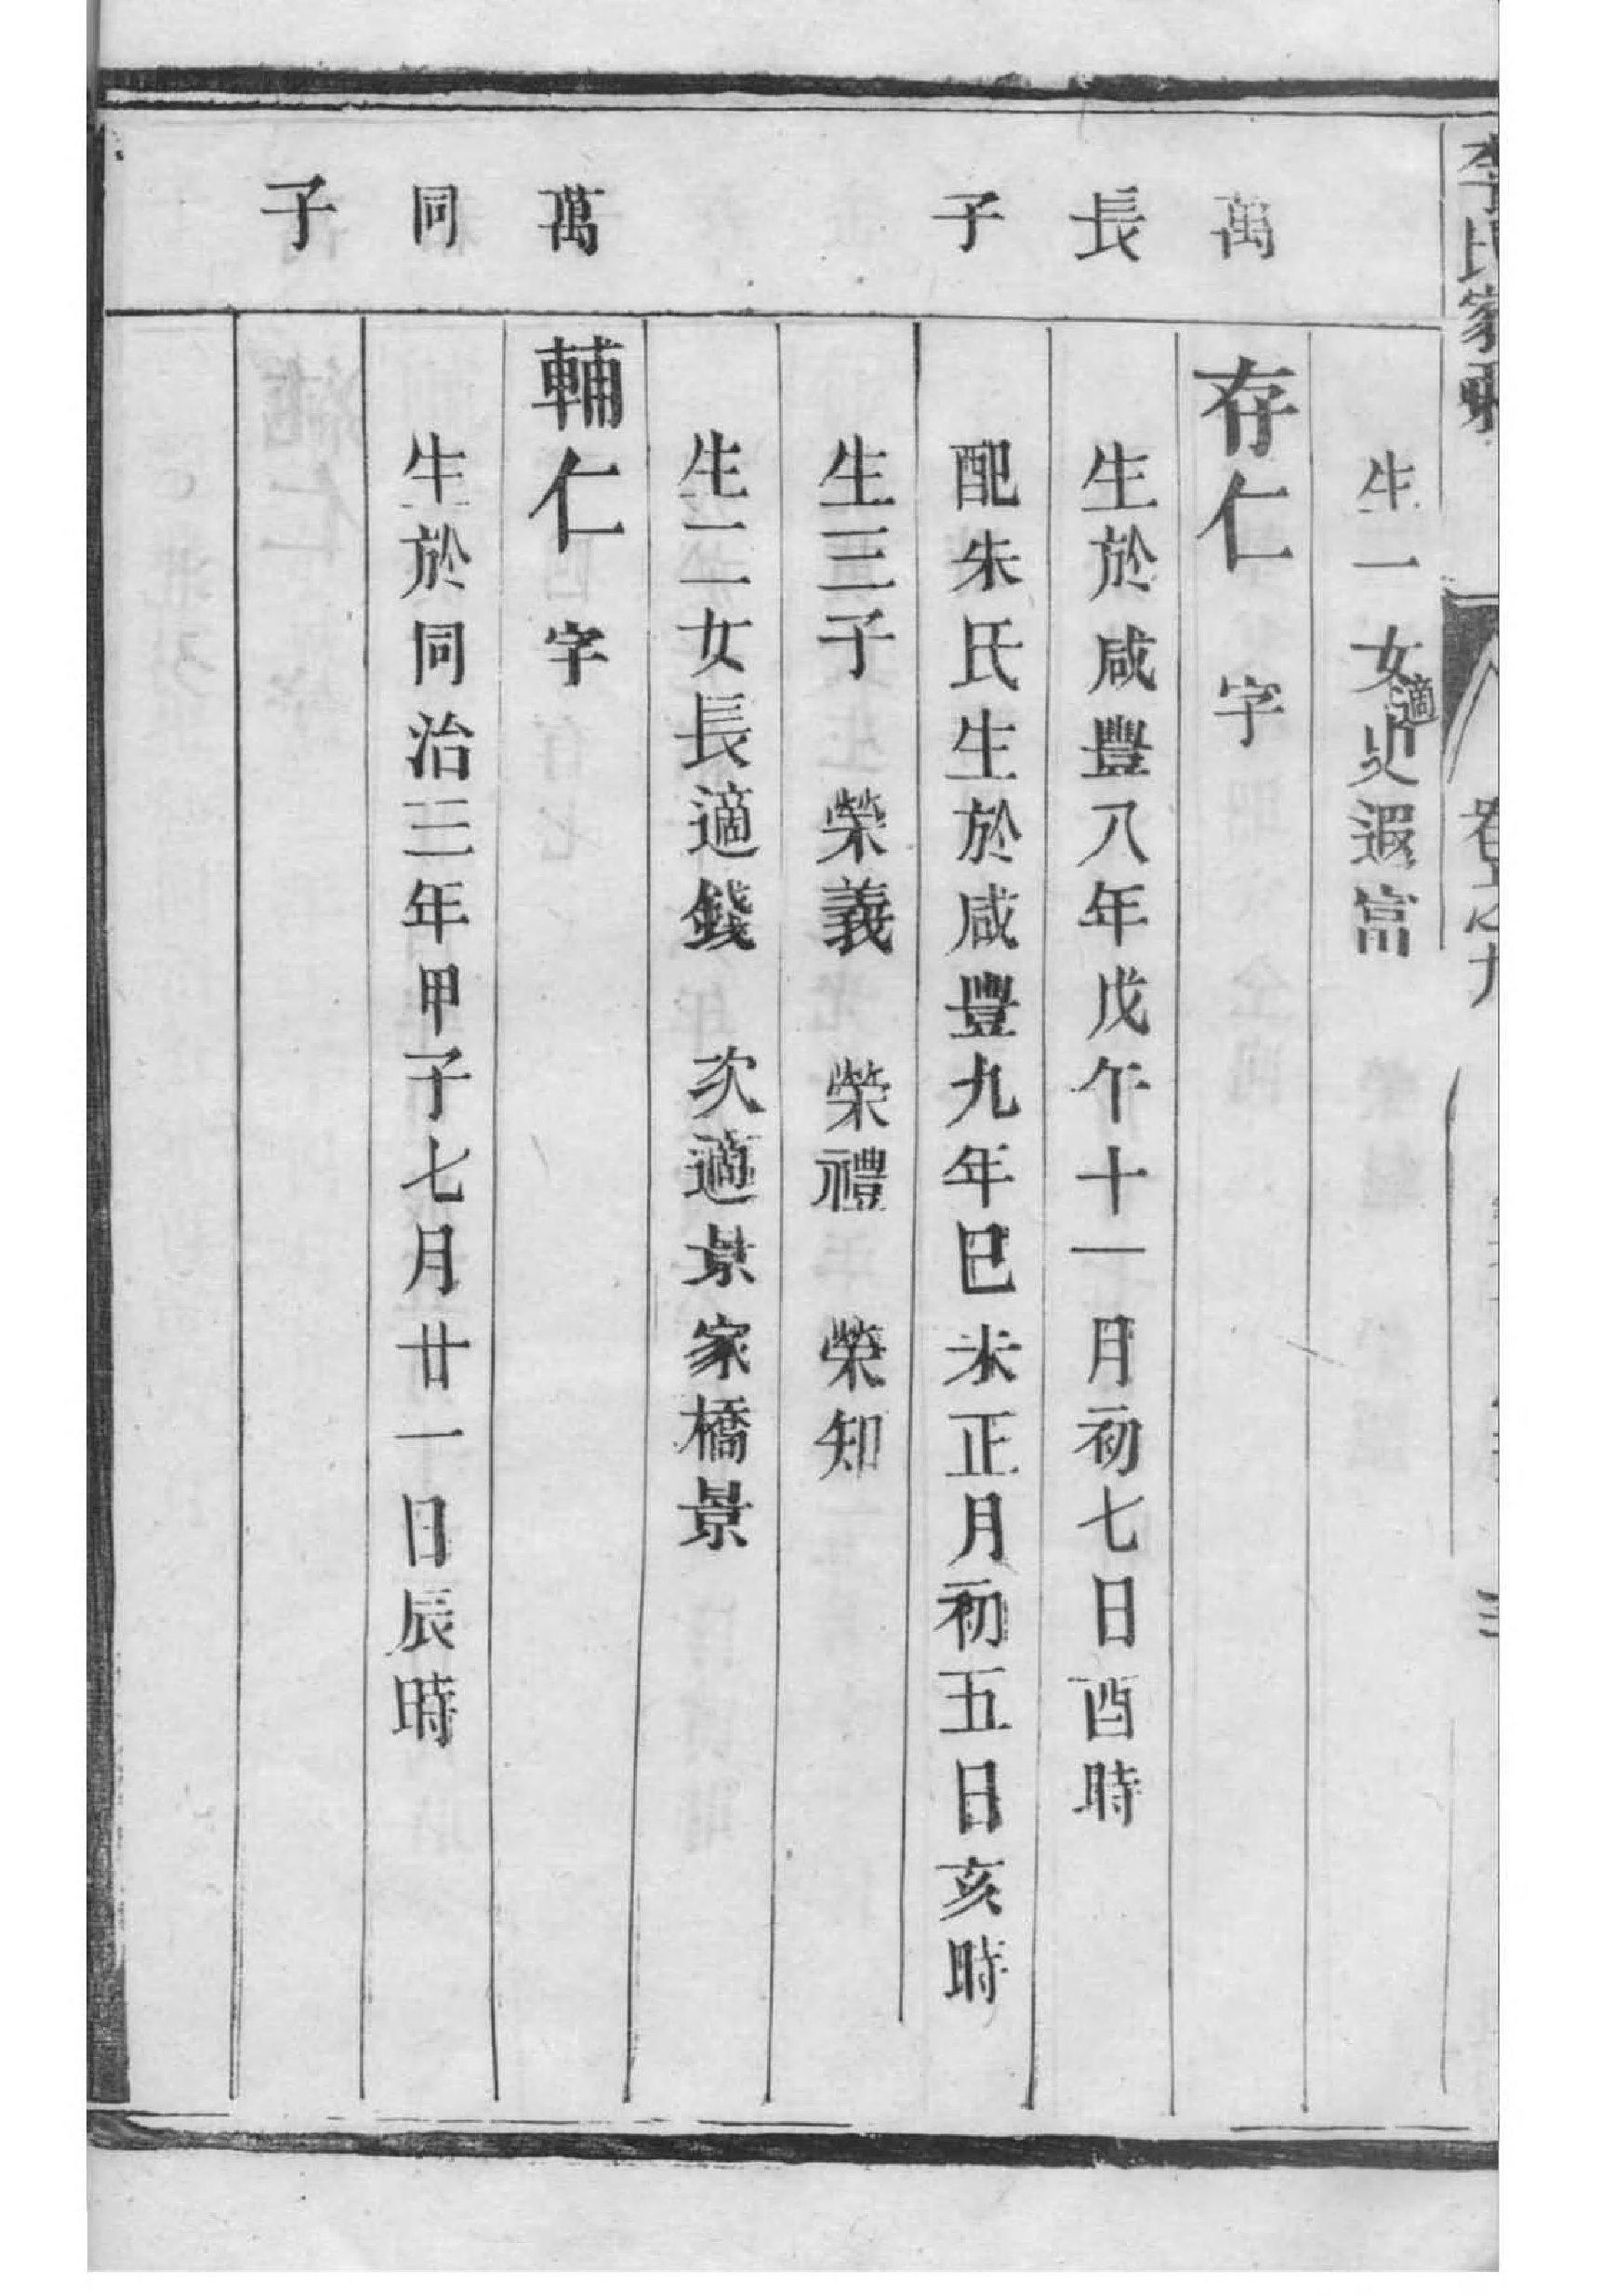 李氏家乘
卷之九
三
生一女適史遐富
萬長子
存仁字
生於咸豐八年戊午十一月初七日酉時
配朱氏生於咸豐九年巳未正月初五日亥時
生三子 榮義 榮禮 榮知
生二女長適錢 次適景家橋景
萬同子
輔仁字
生於同治三年甲子七月廿一日辰時